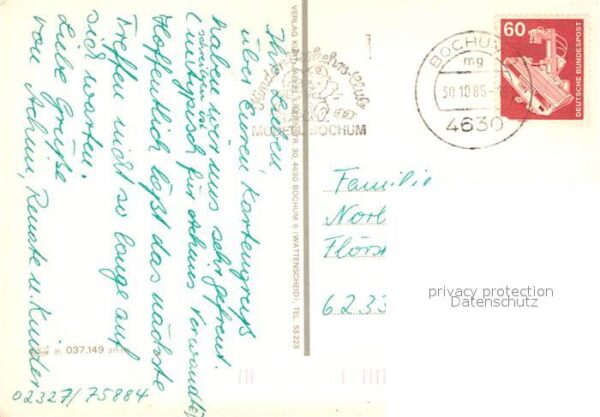 Ihr Lieben,
über Euren Kartengruß
haben wir uns sehr gefreut.
(untypisch für Achims Verwandte)
Hoffentlich läßt das nächste
Treffen nicht so lange auf
sich warten.
Liebe Grüße
von Achim, Renate u. Kinder
02327/75884
037.149
VERLAG KURT
30, 4630 BOCHUM 6 (WATTENSCHEID), TEL. 53 223
BOCHUM
BOCHUM
mg
30.10.86
4630
60
DEUTSCHE BUNDESPOST
Familie
Flörs
6233
privacy protection
Datenschutz